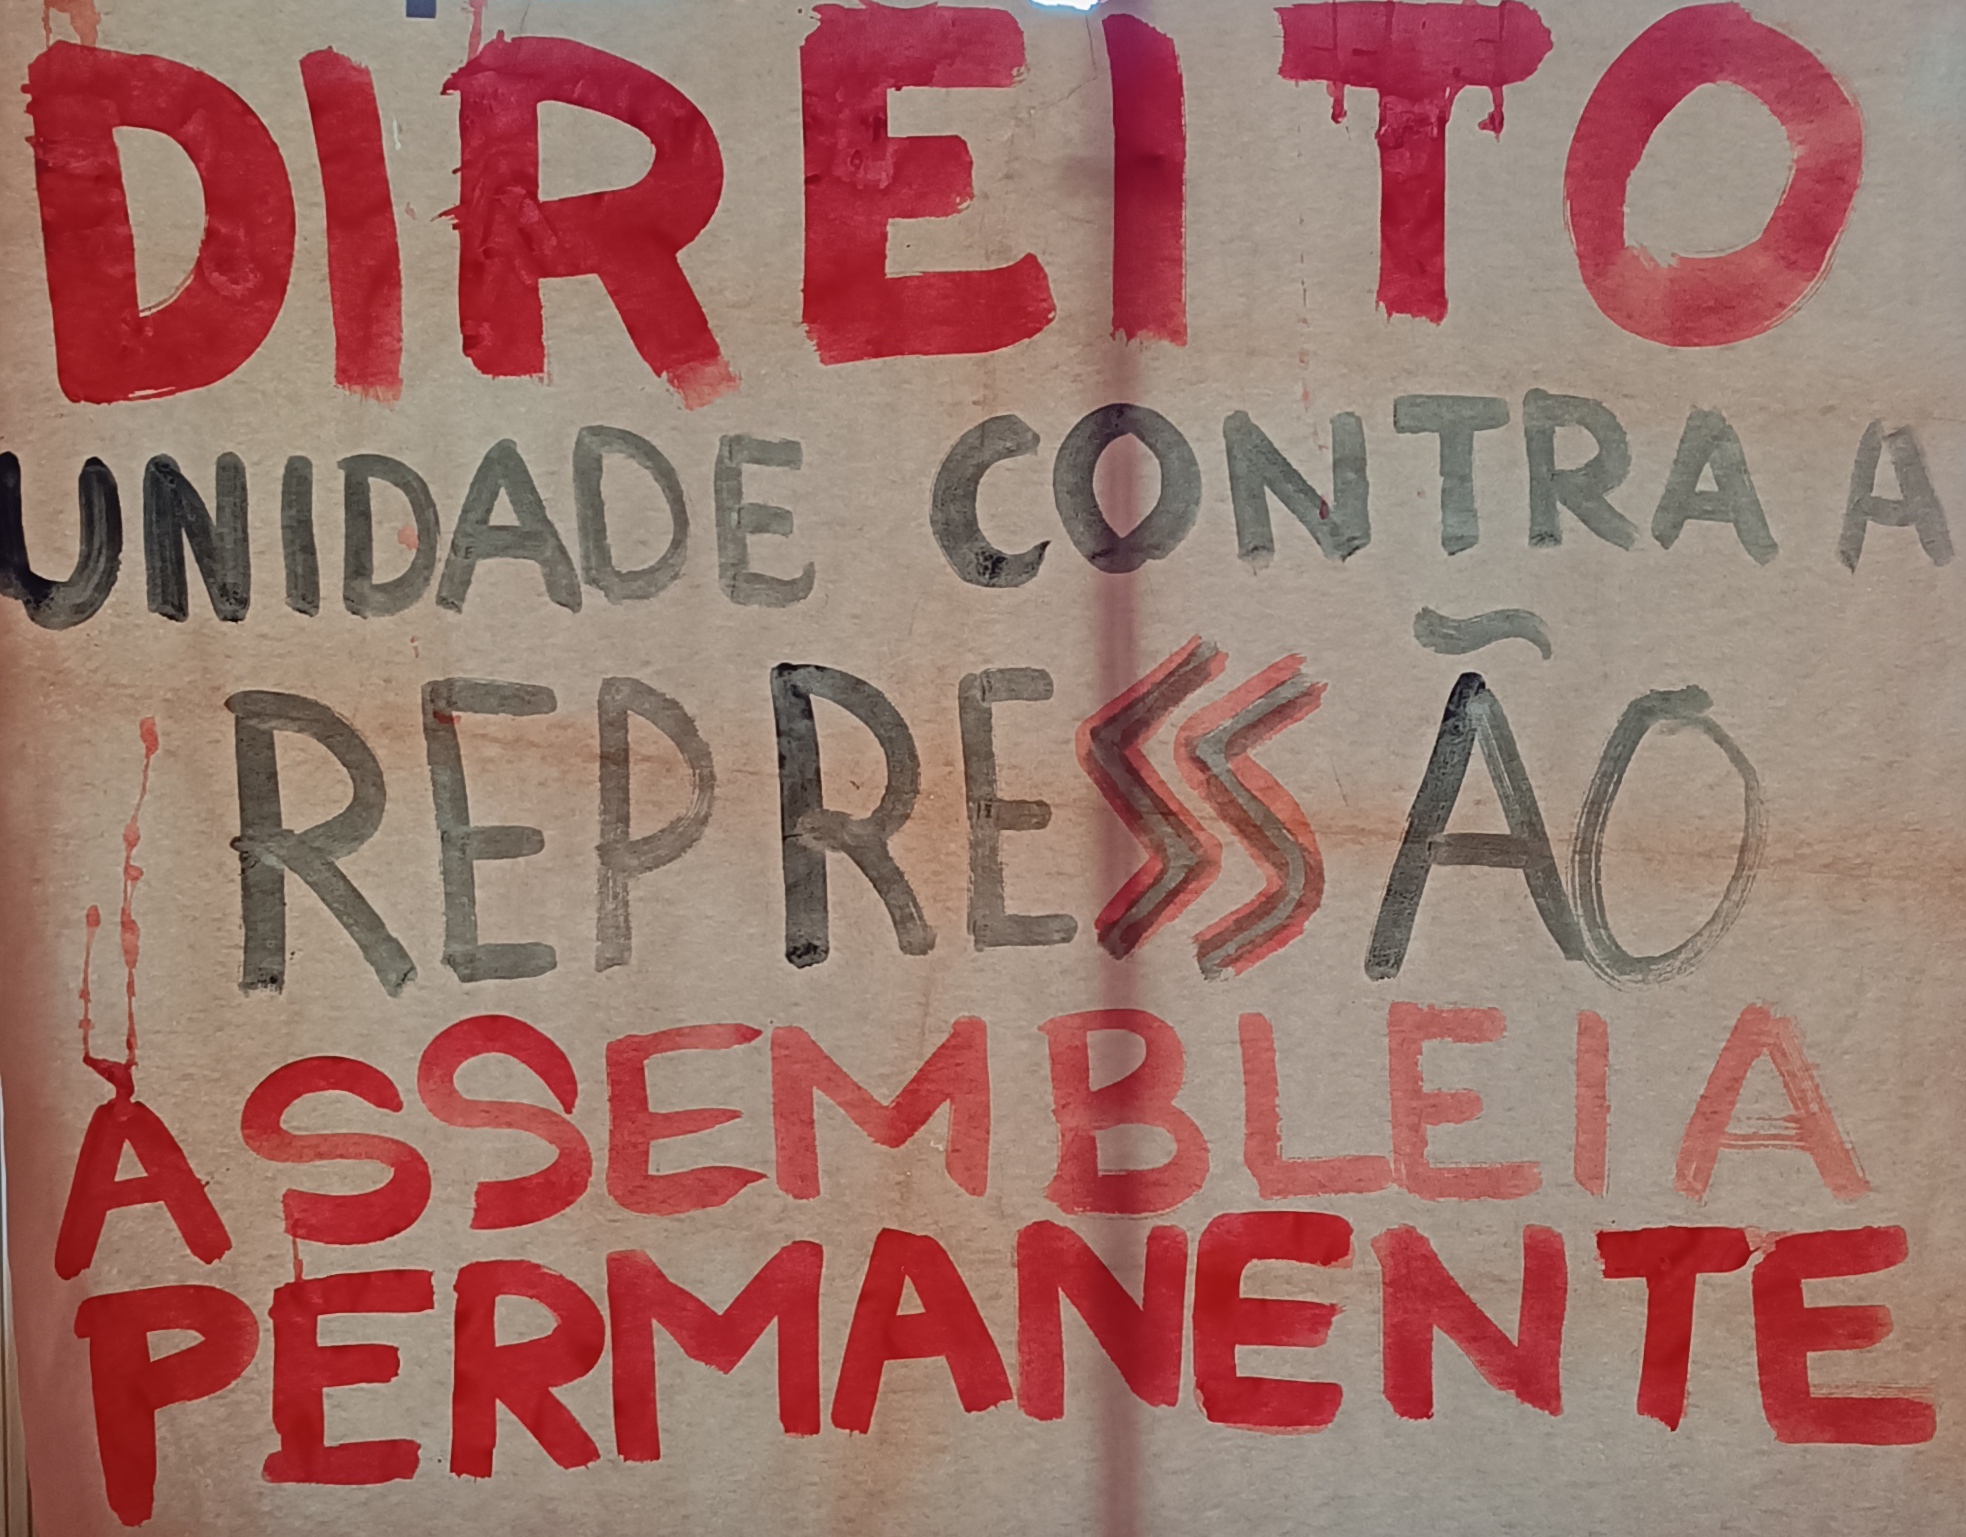 DIREITO
UNIDADE CONTRA A
REPRESSÃO
ASSEMBLEIA
PERMANENTE